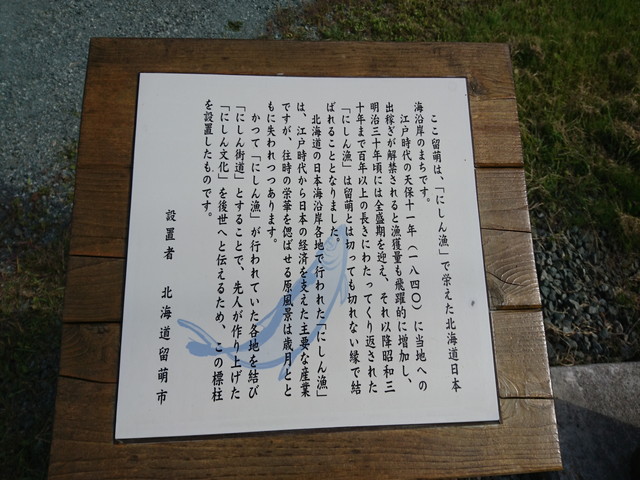 ここ留萌は、「にしん漁」で栄えた北海道日本
海沿岸のまちです。
江戸時代の天保十一年（一八四〇）に当地への
出稼ぎが解禁されると漁獲量も飛躍的に増加し、
明治三十年頃には全盛期を迎え、それ以降昭和三
十年まで百年以上の長きにわたってくり返された
「にしん漁」は留萌とは切っても切れない縁で結
ばれることとなりました。
北海道の日本海沿岸各地で行われた「にしん漁」
は、江戸時代から日本の経済を支えた主要な産業
ですが、往時の栄華を偲ばせる原風景は歳月とと
もに失われつつあります。
かつて「にしん漁」が行われていた各地を結び
「にしん街道」とすることで、先人が作り上げた
「にしん文化」を後世へと伝えるため、この標柱
を設置したものです。
設置者　北海道留萌市